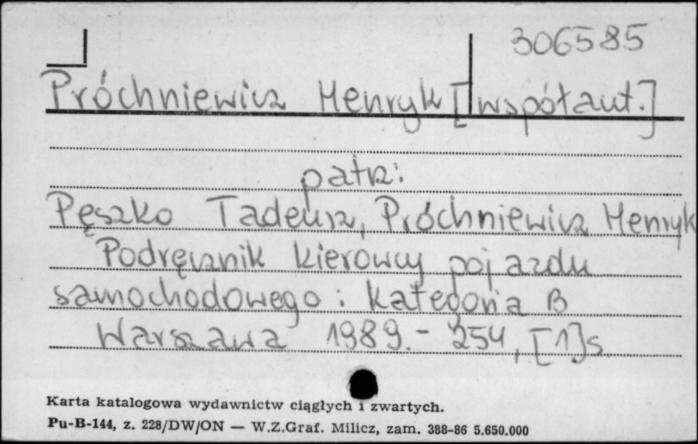 306585
Próchniewicz Henryk [współaut.]
patrz:
Pęszko Tadeusz, Próchniewicz Henryk
Podręcznik kierowcy pojazdu
samochodowego : kategoria B
Warszawa 1989. - 254, [1]s.
Karta katalogowa wydawnictw ciągłych i zwartych.
Pu-B-144, z. 228/DW/ON — W.Z.Graf. Milicz, zam. 388-86 5.650.000